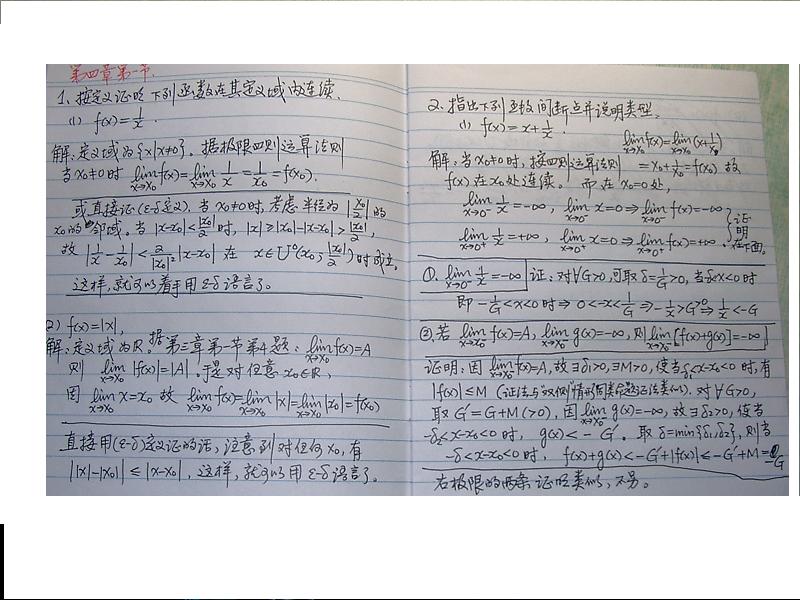 第四章第一节.
1、按定义证明下列函数在其定义域内连续.
(1) f(x)=1/x.
解:定义域为{x|x≠0}. 据极限四则运算法则
当x₀≠0时 lim_{x→x₀} f(x)=lim_{x→x₀} 1/x = 1/x₀ = f(x₀).
或直接证(ε-δ定义). 当x₀≠0时,考虑半径为|x₀/2|的
x₀的邻域. 当|x-x₀|<|x₀|/2时, |x|≥|x₀|-|x-x₀|>|x₀|/2,
故 |1/x - 1/x₀|<2/|x₀|²|x-x₀| 在 x∈U⁰(x₀; |x₀|/2)时成立.
这样,就可以着手用ε-δ语言了。
2) f(x)=|x|,
解:定义域为R. 据第三章第一节第4题:lim_{x→x₀} f(x)=A
则 lim_{x→x₀} |f(x)|=|A|. 于是对任意x₀∈R,
因 lim_{x→x₀} x=x₀ 故 lim_{x→x₀} f(x)=lim_{x→x₀}|x|=lim_{x→x₀}|x₀|=f(x₀)
直接用(ε-δ)定义证的话,注意到对任何x₀,有
||x|-|x₀|| ≤|x-x₀|, 这样,就可以用ε-δ语言了。
2. 指出下列函数间断点并说明类型.
(1) f(x)=x+1/x.
lim_{x→x₀} f(x)=lim_{x→x₀}(x+1/x)
解:当x₀≠0时,按四则运算法则 =x₀+1/x₀=f(x₀), 故
f(x)在x₀处连续。 而在x₀=0处,
lim_{x→0⁻} 1/x=-∞, lim_{x→0⁻} x=0⇒lim_{x→0⁻} f(x)=-∞
lim_{x→0⁺} 1/x=+∞, lim_{x→0⁺} x=0⇒lim_{x→0⁺} f(x)=+∞.
证明在下面.
①. lim_{x→0⁻} 1/x=-∞ 证:对∀G>0,可取δ=1/G>0,当-δ<x<0时
即 -1/G<x<0时⇒ 0<-x<1/G ⇒ -1/x>G>0⇒ 1/x<-G
②.若 lim_{x→x₀⁻} f(x)=A, lim_{x→x₀⁻} g(x)=-∞, 则 lim_{x→x₀⁻}[f(x)+g(x)]=-∞
证明:因 lim_{x→x₀⁻} f(x)=A, 故∃δ₁>0,∃M>0,使当-δ₁<x-x₀<0时,有
|f(x)|≤M (证法与"双侧"情的同类命题证法类似). 对∀G>0,
取G'=G+M(>0), 因 lim_{x→x₀⁻} g(x)=-∞, 故∃δ₂>0,使当
-δ₂<x-x₀<0时, g(x)<-G'. 取δ=min{δ₁,δ₂}, 则当
-δ<x-x₀<0时, f(x)+g(x)<-G'+|f(x)|≤-G'+M=-G
右极限的两条证明类似,不另。